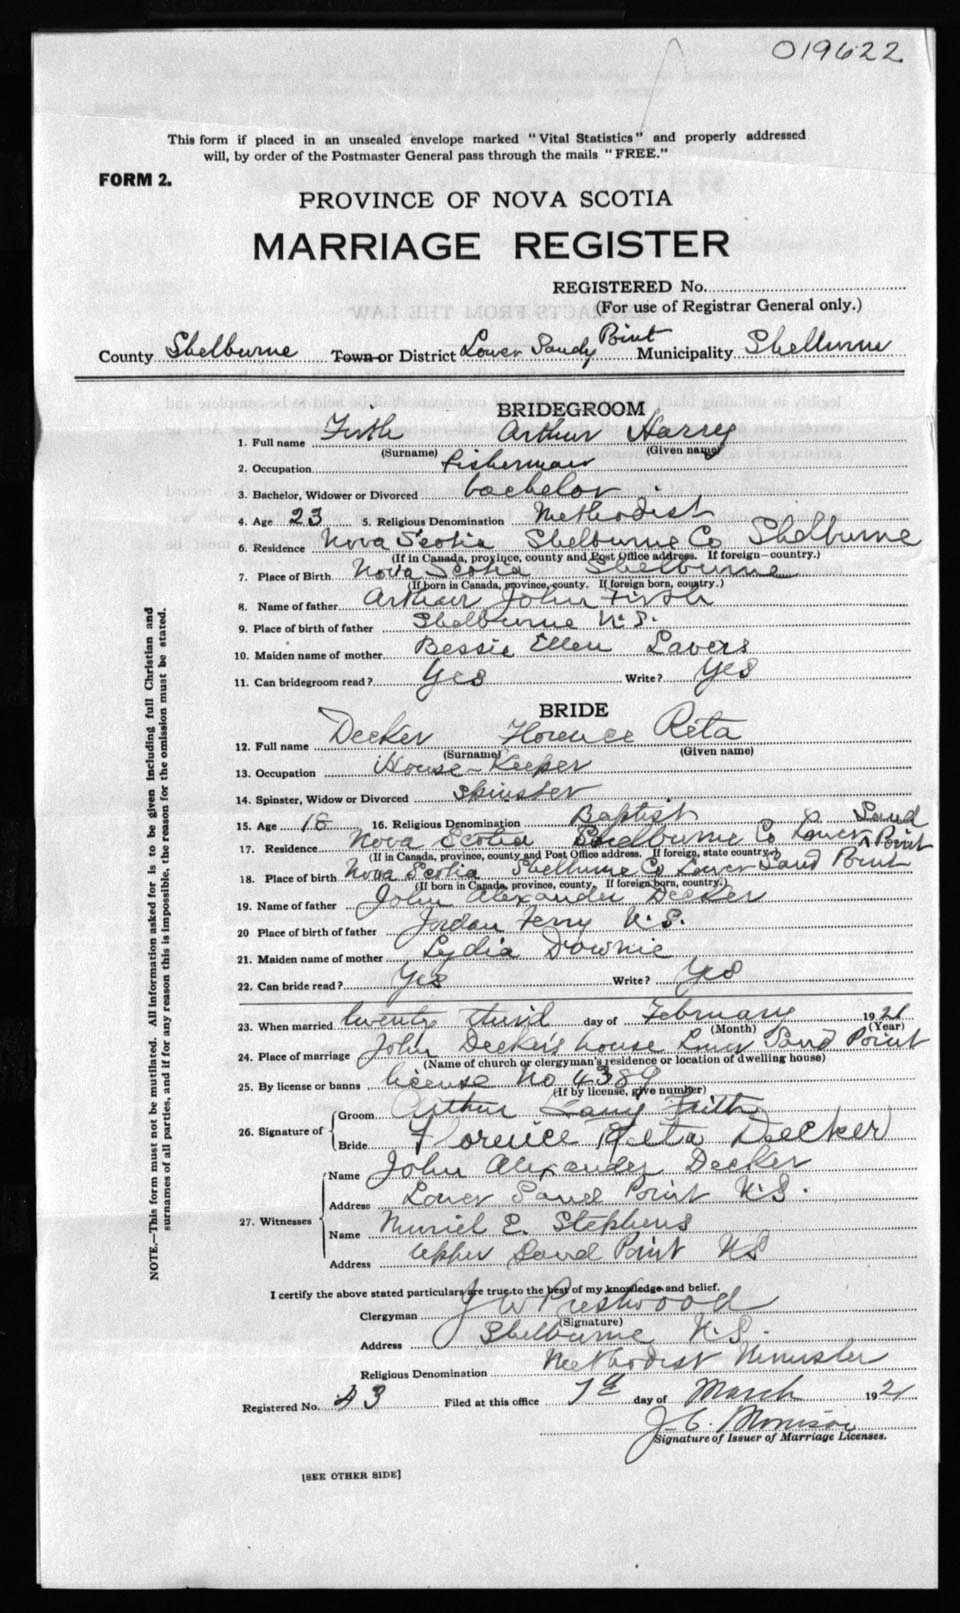 019622
This form if placed in an unsealed envelope marked "Vital Statistics" and properly addressed
will, by order of the Postmaster General pass through the mails "FREE."
FORM 2.
PROVINCE OF NOVA SCOTIA
MARRIAGE REGISTER
REGISTERED No.
(For use of Registrar General only.)
County Shelburne Town or District Lower Sandy Point Municipality Shelburne
BRIDEGROOM
1. Full name Firth Arthur Harry
(Surname) (Given name)
2. Occupation Fisherman
3. Bachelor, Widower or Divorced bachelor
4. Age 23 5. Religious Denomination Methodist
6. Residence Nova Scotia Shelburne Co Shelburne
(If in Canada, province, county and Post Office address. If foreign-country.)
7. Place of Birth Nova Scotia Shelburne
(If born in Canada, province, county. If foreign born, country.)
8. Name of father Arthur John Firth
9. Place of birth of father Shelburne N.S.
10. Maiden name of mother Bessie Ellen Lavers
11. Can bridegroom read? Yes Write? Yes
BRIDE
12. Full name Decker Florence Reta
(Surname) (Given name)
13. Occupation House-Keeper
14. Spinster, Widow or Divorced Spinster
15. Age 18 16. Religious Denomination Baptist
17. Residence Nova Scotia Shelburne Co Lower Sand Point
(If in Canada, province, county and Post Office address. If foreign, state country.)
18. Place of birth Nova Scotia Shelburne Co Lower Sand Point
(If born in Canada, province, county. If foreign born, country.)
19. Name of father John Alexander Decker
20 Place of birth of father Jordan Ferry N.S.
21. Maiden name of mother Lydia Downie
22. Can bride read? Yes Write? Yes
23. When married twenty third day of February 1921
(Month) (Year)
24. Place of marriage John Decker's house Lower Sand Point
(Name of church or clergyman's residence or location of dwelling house)
25. By license or banns license No 4389
(If by license, give number)
26. Signature of Groom Arthur Harry Frith
Bride Florence Reta Decker
27. Witnesses Name John Alexander Decker
Address Lower Sand Point N.S.
Name Muriel E. Stephens
Address Upper Sand Point NS
I certify the above stated particulars are true to the best of my knowledge and belief.
Clergyman J W Prestwood
(Signature)
Address Shelburne N.S.
Religious Denomination Methodist Minister
Registered No. 43 Filed at this office 7th day of March 1921
J. C. Morrison
Signature of Issuer of Marriage Licenses.
[SEE OTHER SIDE]
NOTE.—This form must not be mutilated. All information asked for is to be given including full Christian and
surnames of all parties, and if for any reason this is impossible, the reason for the omission must be stated.